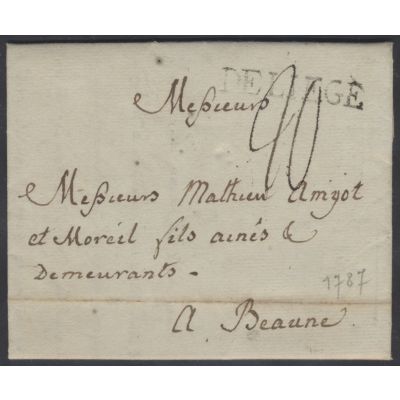 DE LIEGE
Messieurs
20
Messieurs Mathieu Amyot
et Moreil fils ainés &
Demeurants.
A Beaune.
1787